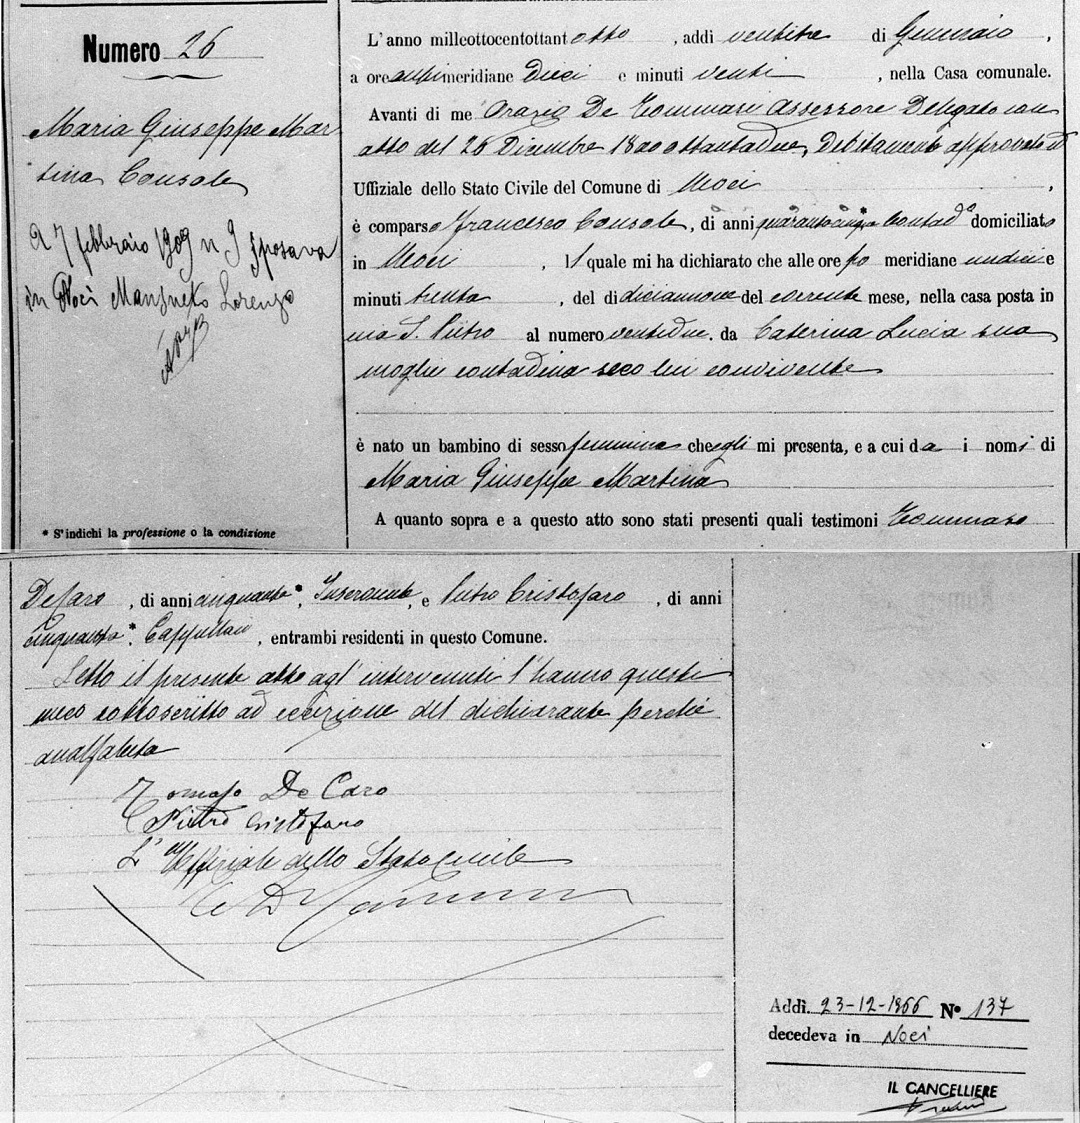 Numero 26
Maria Giuseppe Mar
tina Console
a 7 febbraio 1909 n 9 sposava
in Noci Lorenzo
* S'indichi la professione o la condizione
L'anno milleottocentottantotto, addì ventitre di Gennaio,
a ore antimeridiane Dieci e minuti venti, nella Casa comunale.
Avanti di me Orazio De Tommasi Assessore Delegato con
atto del 26 Dicembre 18 ottantadue, Debitamente approvato
Uffiziale dello Stato Civile del Comune di Noci,
è comparso Francesco Console, di anni quarantacinque Contado domiciliato
in Noci, il quale mi ha dichiarato che alle ore po meridiane undici e
minuti trenta, del dì diciannove del corrente mese, nella casa posta in
via S. Pietro al numero ventidue, da Caterina Lucia sua
moglie contadina seco lui convivente
è nato un bambino di sesso femminino che egli mi presenta, e a cui da i nomi di
Maria Giuseppa Martina
A quanto sopra e a questo atto sono stati presenti quali testimoni Tommaso
Decaro, di anni cinquanta*, Inserviente, e Pietro Cristofaro, di anni
cinquanta*, Cappellaio, entrambi residenti in questo Comune.
Letto il presente atto agl'intervenuti l'hanno questi
meco sottoscritto ad eccezione del dichiarante perchè
analfabeta
Tomaso De Caro
Pietro Cristofaro
L'Uffiziale dello Stato Civile
Addì 23-12-1966 N° 137
decedeva in Noci
IL CANCELLIERE